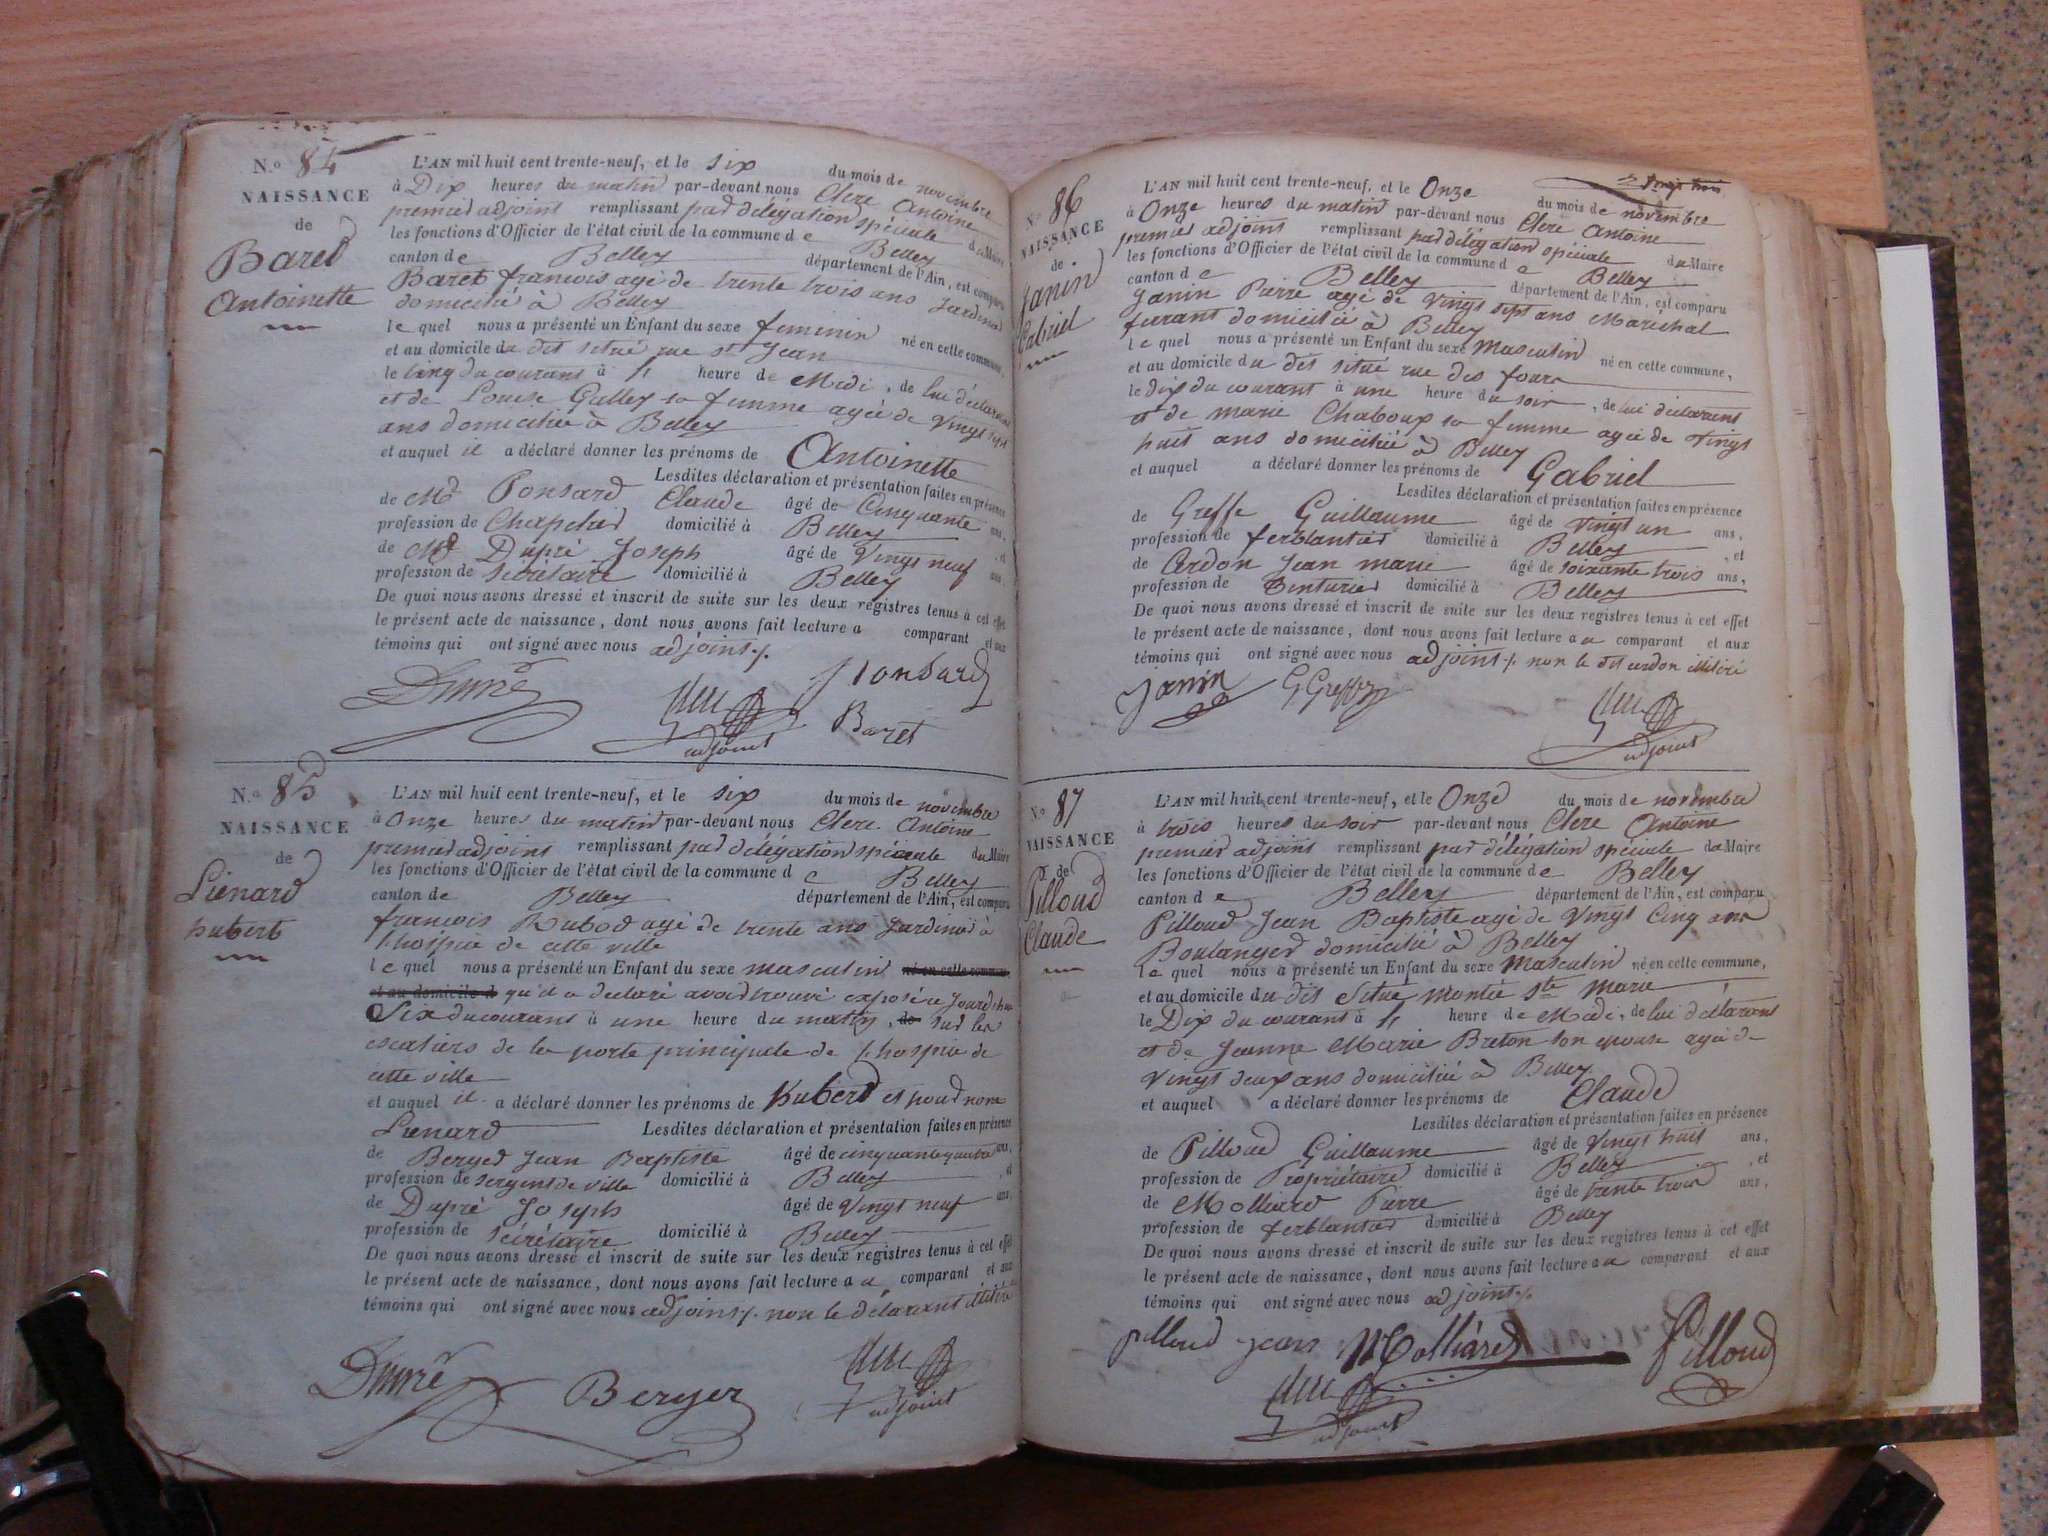 N.º 84
NAISSANCE
de
Baret
Antoinette
L'AN mil huit cent trente-neuf, et le six du mois de novembre
à Dix heures du matin par-devant nous Clerc Antoine
premier adjoint remplissant par délégation spéciale du Maire
les fonctions d'Officier de l'état civil de la commune de Belley
canton de Belley département de l'Ain, est comparu
Baret francois agé de trente trois ans Jardinier
domicilié à Belley
lequel nous a présenté un Enfant du sexe feminin né en cette commune,
et au domicile du dit situé rue st Jean
le cinq du courant à heure de Midi, de lui déclarant
et de Louise Gulley sa femme agée de Vingt sept
ans domiciliée à Belley
et auquel il a déclaré donner les prénoms de Antoinette
Lesdites déclaration et présentation faites en présence
de Mr Ponsard Claude âgé de Cinquante ans,
profession de Chapelier domicilié à Belley , et
de Mr Dupré Joseph âgé de Vingt neuf ans,
profession de Secrétaire domicilié à Belley
De quoi nous avons dressé et inscrit de suite sur les deux registres tenus à cet effet
le présent acte de naissance, dont nous avons fait lecture a comparant et aux
témoins qui ont signé avec nous adjoint
Dupré Clerc Ponsard
adjoint Baret
N.º 85
NAISSANCE
de
Liénard
hubert
L'AN mil huit cent trente-neuf, et le six du mois de novembre
à Onze heures du matin par-devant nous Clerc Antoine
premier adjoint remplissant par délégation spéciale du Maire
les fonctions d'Officier de l'état civil de la commune de Belley
canton de Belley département de l'Ain, est comparu
francois Rubod agé de trente ans Jardinier à
l'hospice de cette ville
lequel nous a présenté un Enfant du sexe masculin né en cette commune,
et au domicile d qu'il a declaré avoir trouvé exposé ce Jourd'hui
Six du courant à une heure du matin, de sur les
escaliers de la porte principale de l'hospice de
cette ville
et auquel il a déclaré donner les prénoms de hubert et pour nom
Lienard Lesdites déclaration et présentation faites en présence
de Berger Jean Baptiste âgé de cinquante quatre ans,
profession de Sergent de ville domicilié à Belley , et
de Dupré Joseph âgé de Vingt neuf ans,
profession de Secrétaire domicilié à Belley
De quoi nous avons dressé et inscrit de suite sur les deux registres tenus à cet effet
le présent acte de naissance, dont nous avons fait lecture a a comparant et aux
témoins qui ont signé avec nous adjoint non le déclarant illitéré
Dupré Berger Clerc
adjoint
N.º 86
NAISSANCE
de
Janin
Gabriel
L'AN mil huit cent trente-neuf, et le Onze du mois de novembre
à Onze heures du matin par-devant nous Clerc Antoine
premier adjoint remplissant par délégation spéciale du Maire
les fonctions d'Officier de l'état civil de la commune de Belley
canton de Belley département de l'Ain, est comparu
Janin Pierre agé de Vingt sept ans Maréchal
ferrant domicilié à Belley
lequel nous a présenté un Enfant du sexe Masculin né en cette commune,
et au domicile du dit situé rue des fours
le dix du courant à une heure du soir, de lui déclarant
et de marie Chaboux sa femme agée de Vingt
huit ans domiciliée à Belley
et auquel a déclaré donner les prénoms de Gabriel
Lesdites déclaration et présentation faites en présence
de Greffe Guillaume âgé de vingt un ans,
profession de ferblantier domicilié à Belley , et
de Cerdon Jean marie âgé de soixante trois ans,
profession de Teinturier domicilié à Belley
De quoi nous avons dressé et inscrit de suite sur les deux registres tenus à cet effet
le présent acte de naissance, dont nous avons fait lecture a a comparant et aux
témoins qui ont signé avec nous adjoint non le dit cerdon illitéré
Janin G Greffe Clerc
adjoint
N.º 87
NAISSANCE
de
Pilloud
Claude
L'AN mil huit cent trente-neuf, et le Onze du mois de novembre
à trois heures du soir par-devant nous Clerc Antoine
premier adjoint remplissant par délégation spéciale du Maire
les fonctions d'Officier de l'état civil de la commune de Belley
canton de Belley département de l'Ain, est comparu
Pilloud Jean Baptiste agé de Vingt Cinq ans
Boulanger domicilié à Belley
lequel nous a présenté un Enfant du sexe Masculin né en cette commune,
et au domicile du dit Situé Montée Ste Marie
le Dix du courant à heure de Midi, de lui déclarant
et de Jeanne Marie Breton son epouse agée de
Vingt deux ans domiciliée à Belley
et auquel a déclaré donner les prénoms de Claude
Lesdites déclaration et présentation faites en présence
de Pilloud Guillaume âgé de Vingt huit ans,
profession de Propriétaire domicilié à Belley , et
de Molliard Pierre âgé de trente trois ans,
profession de ferblantier domicilié à Belley
De quoi nous avons dressé et inscrit de suite sur les deux registres tenus à cet effet
le présent acte de naissance, dont nous avons fait lecture a a comparant et aux
témoins qui ont signé avec nous adjoint
pilloud jean Molliard Pilloud
Clerc
adjoint